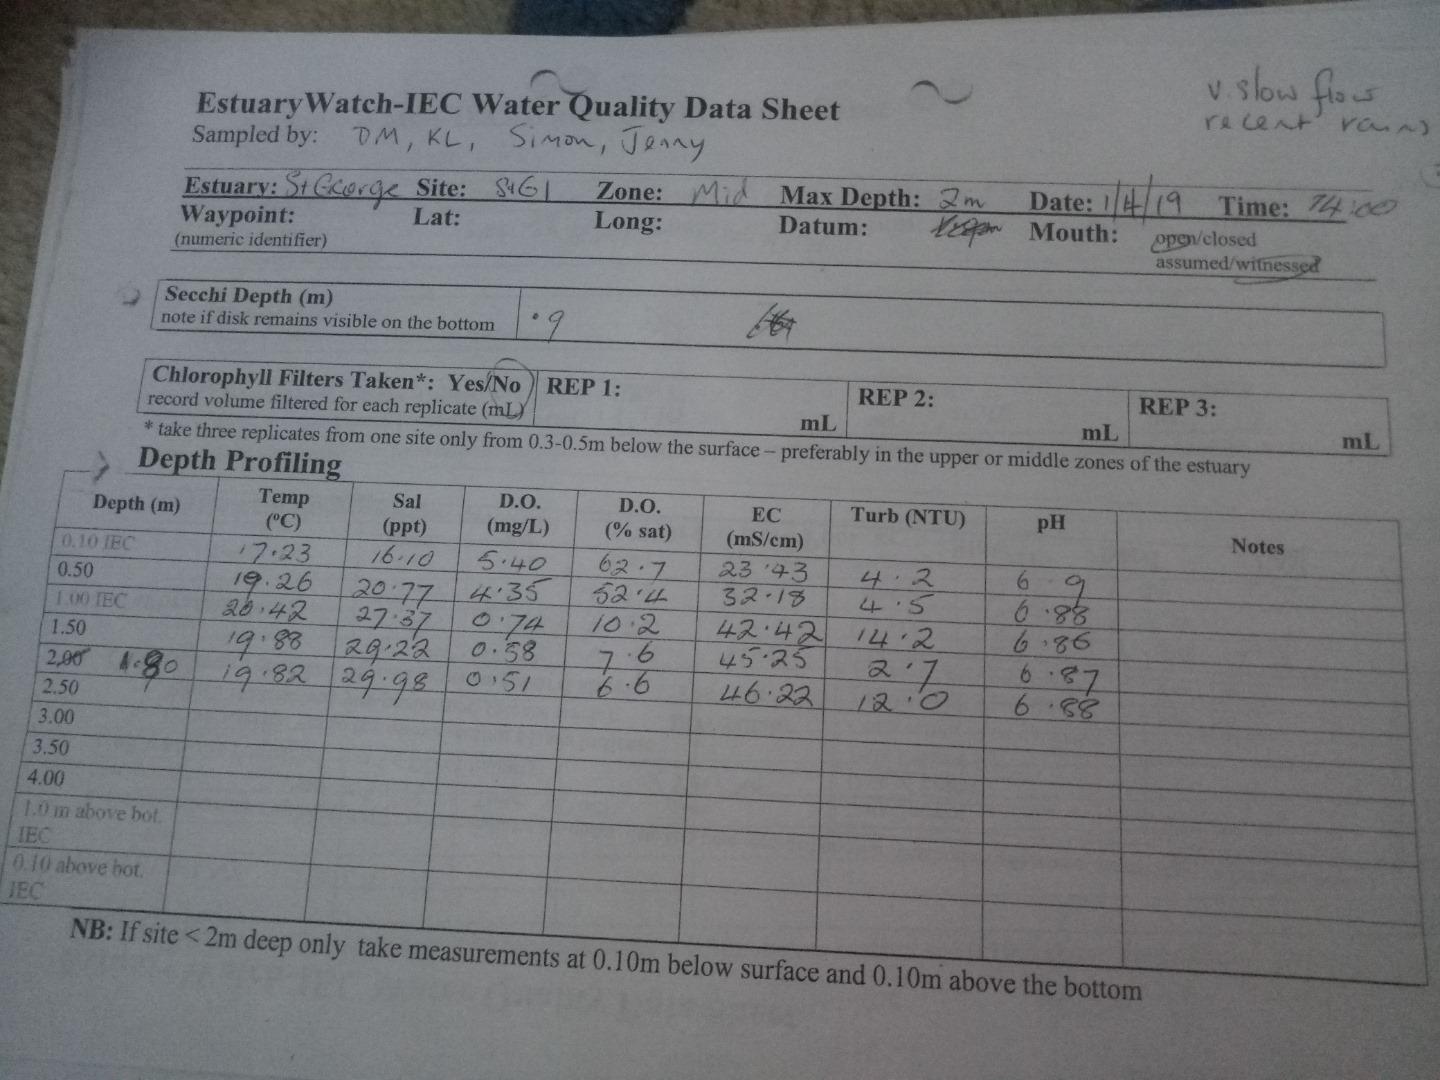 v. slow flow
recent rains
EstuaryWatch-IEC Water Quality Data Sheet
Sampled by: DM, KL, Simon, Jenny
Estuary: St George Site: StG1 Zone: Mid Max Depth: 2m Date: 1/4/19 Time: 14:00
Waypoint: Lat: Long: Datum: Mouth: open/closed
(numeric identifier) assumed/witnessed
Secchi Depth (m)
note if disk remains visible on the bottom .9
Chlorophyll Filters Taken*: Yes/No REP 1: REP 2: REP 3:
record volume filtered for each replicate (mL) mL mL mL
* take three replicates from one site only from 0.3-0.5m below the surface – preferably in the upper or middle zones of the estuary
Depth Profiling
Depth (m) Temp (ºC) Sal (ppt) D.O. (mg/L) D.O. (% sat) EC (mS/cm) Turb (NTU) pH Notes
0.10 IEC 17.23 16.10 5.40 62.7 23.43 4.2 6.9
0.50 19.26 20.77 4.35 52.4 32.18 4.5 6.88
1.00 IEC 20.42 27.37 0.74 10.2 42.42 14.2 6.86
1.50 19.88 29.22 0.58 7.6 45.25 2.7 6.87
2.00 1.80 19.82 29.98 0.51 6.6 46.22 12.0 6.88
2.50
3.00
3.50
4.00
1.0 m above bot.
IEC
0.10 above bot.
IEC
NB: If site < 2m deep only take measurements at 0.10m below surface and 0.10m above the bottom